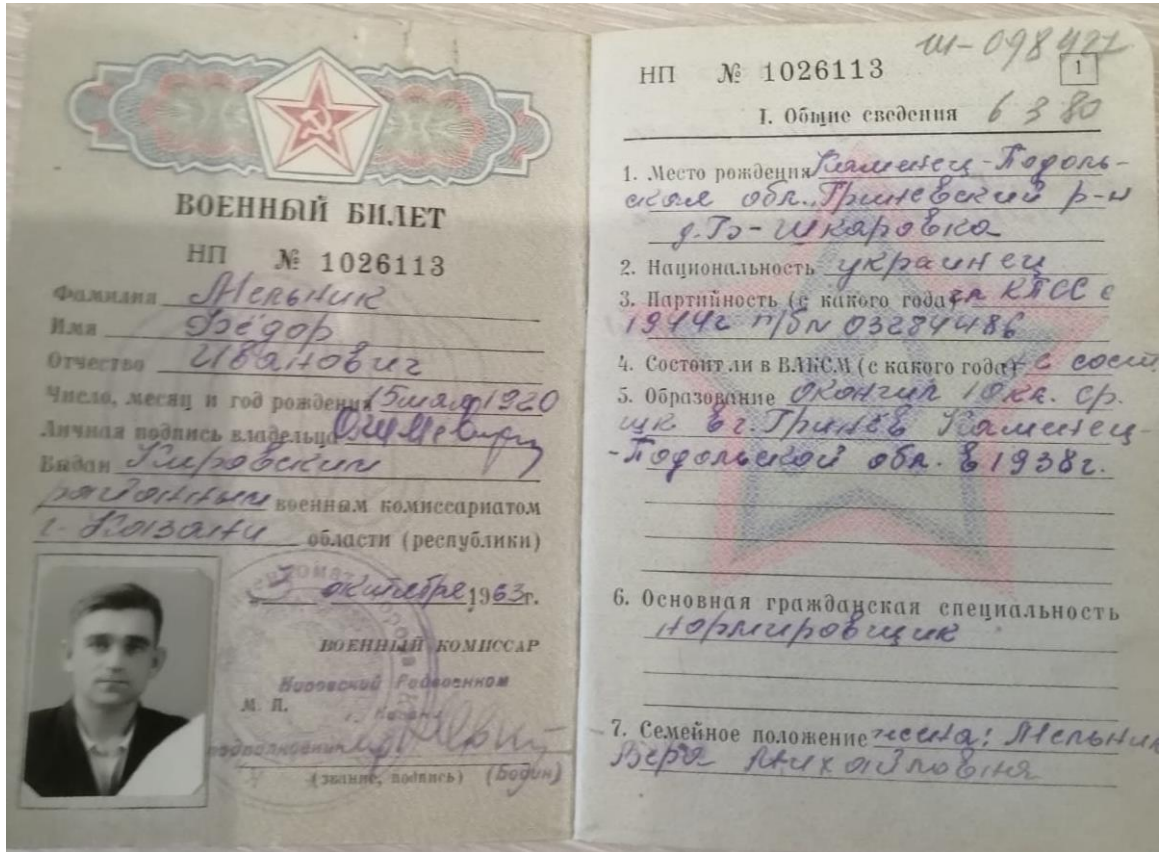 ВОЕННЫЙ БИЛЕТ
НП № 1026113
Фамилия Мельник
Имя Фёдор
Отчество Иванович
Число, месяц и год рождения 15 мая 1920
Личная подпись владельца
Выдан Кировским
районным военным комиссариатом
г. Казани области (республики)
октября 1963г.
ВОЕННЫЙ КОМИССАР
Кировский Райвоенком
М. П. г. Казани
подполковник
(звание, подпись) (Бодин)
Ш-098421
НП № 1026113
1
I. Общие сведения 6 3 80
1. Место рождения Каменец-Подоль-
ская обл., Гриневский р-н
д. Шкаровка
2. Национальность украинец
3. Партийность (с какого года) чл КПСС с
1944г п/б № 03284486
4. Состоит ли в ВЛКСМ (с какого года)
5. Образование окончил 10 кл. ср.
шк в г. Гринёв Каменец-
-Подольской обл. в 1938г.
6. Основная гражданская специальность
нормировщик
7. Семейное положение жена: Мельник
Вера Михайловна